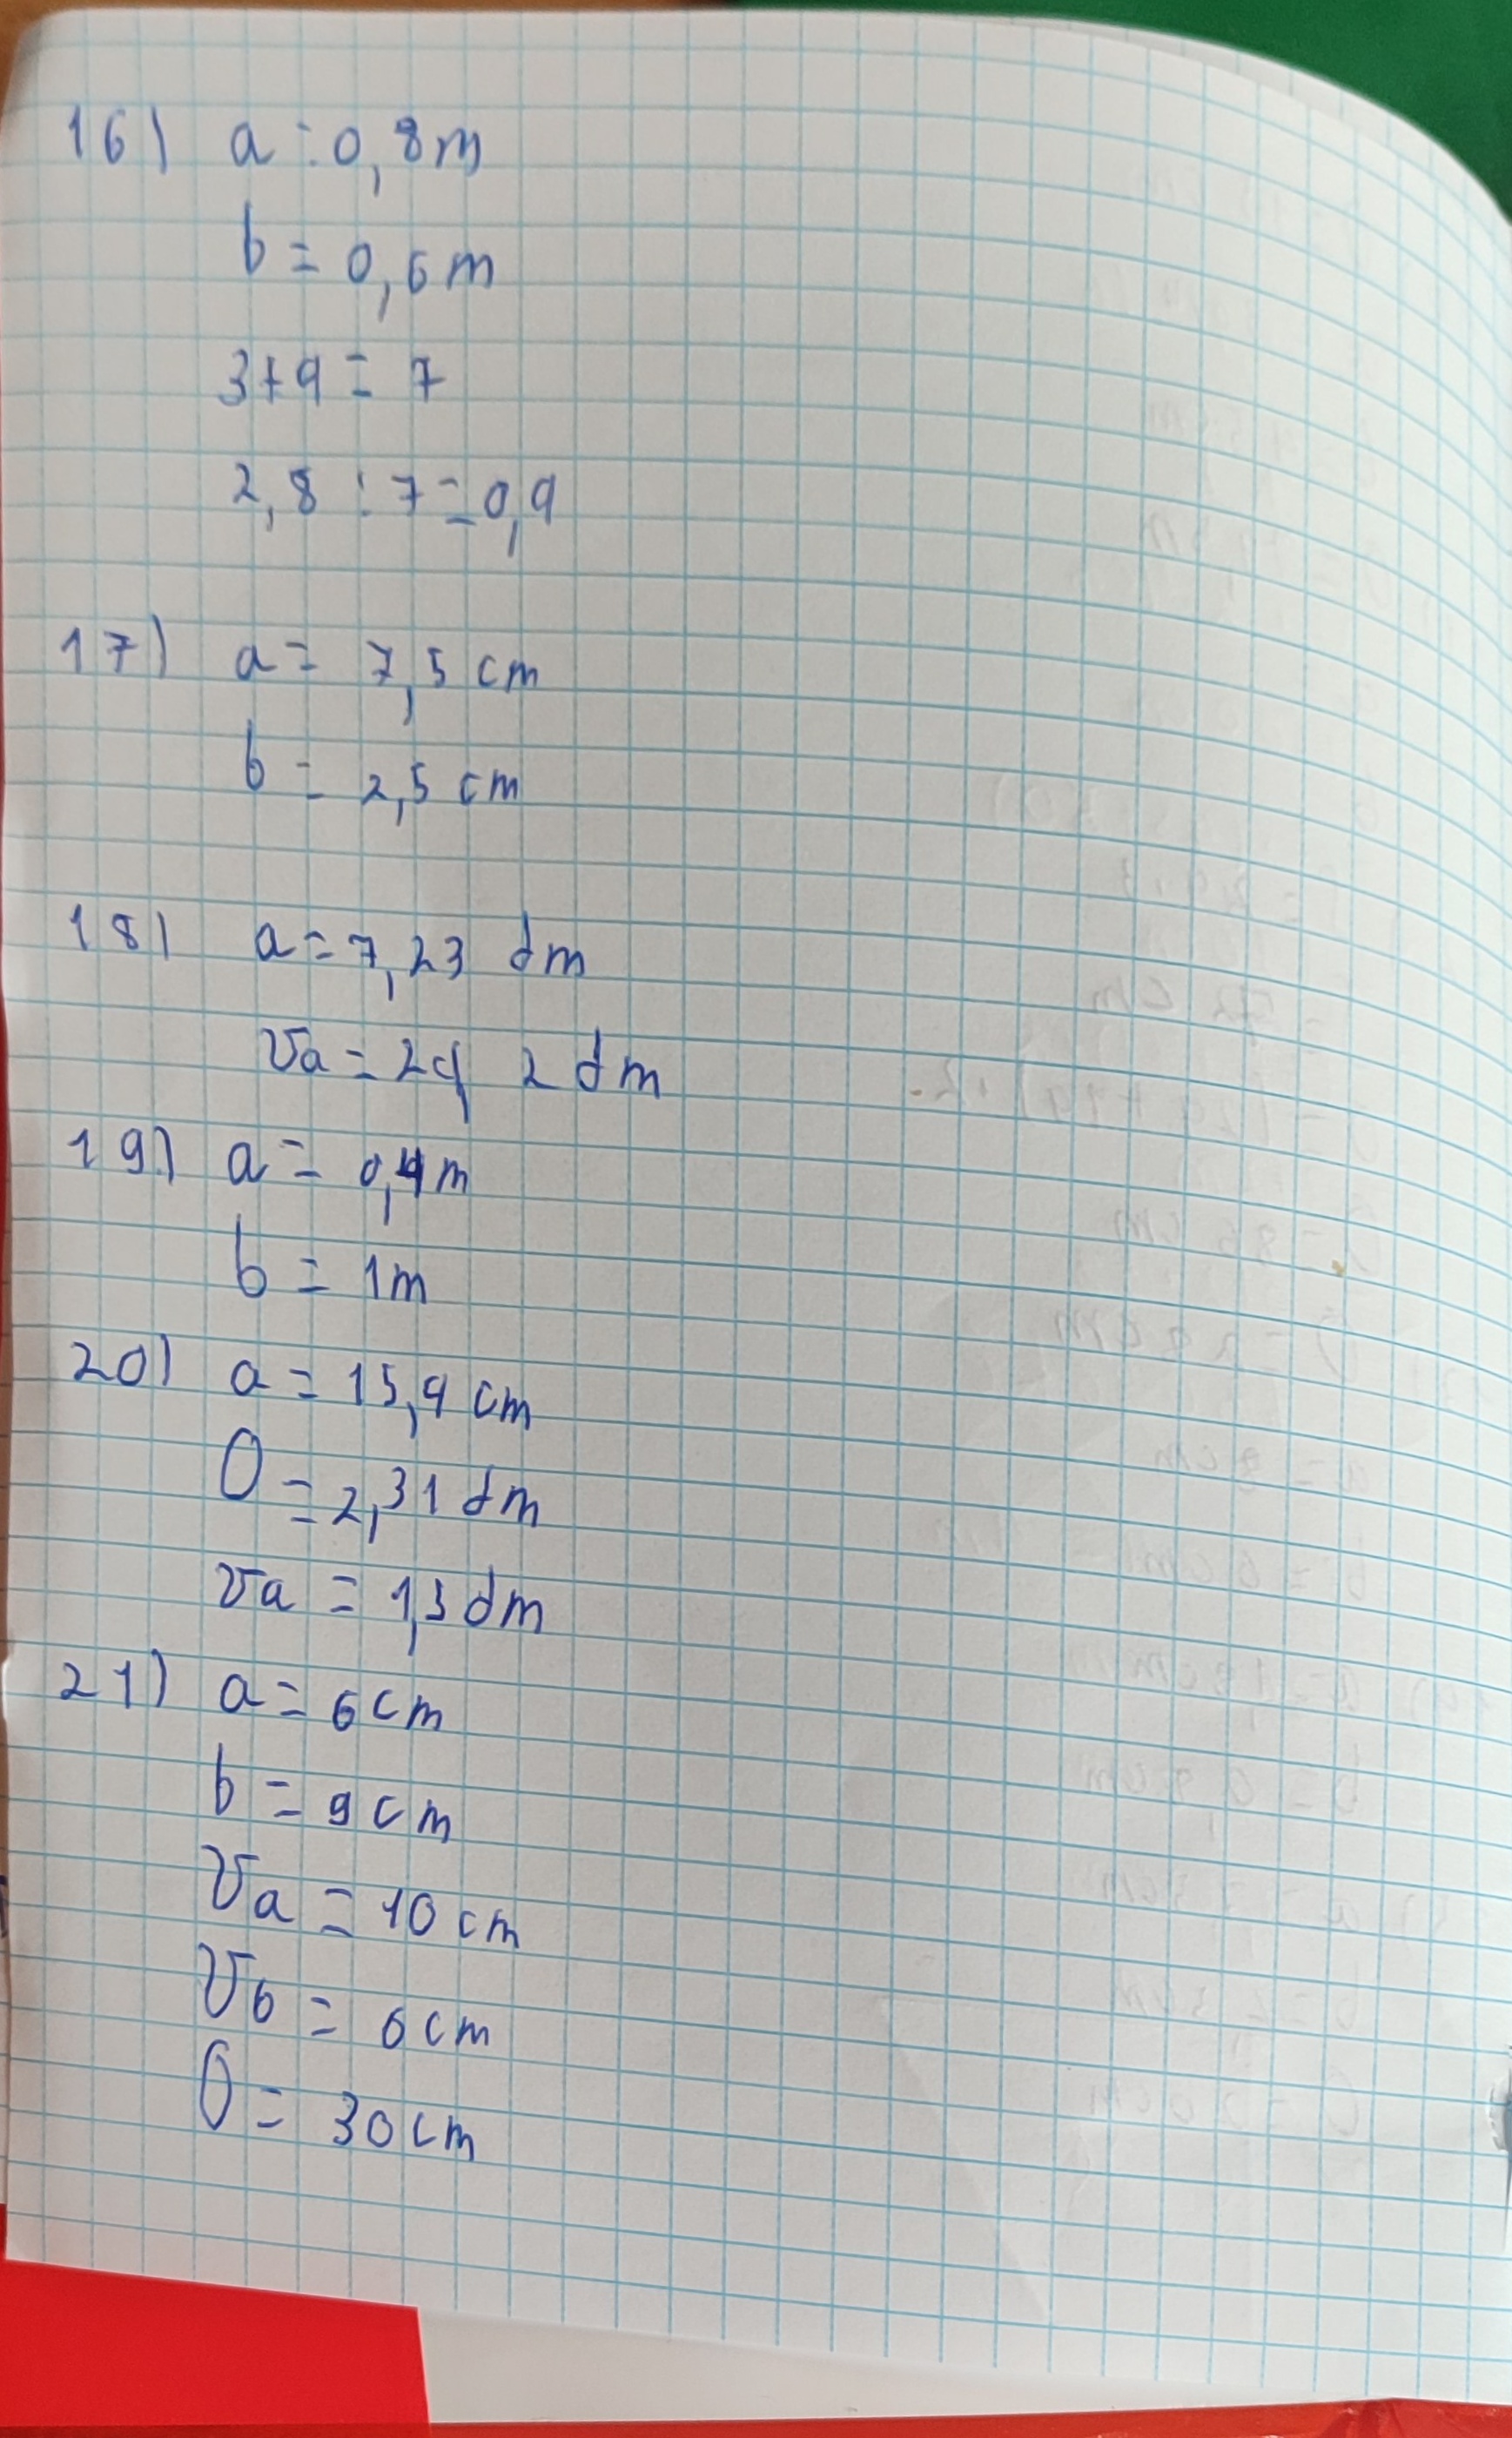 16) a = 0,8 m
b = 0,6 m
3+4 = 7
2,8 : 7 = 0,4
17) a = 7,5 cm
b = 2,5 cm
18) a = 7,23 dm
va = 24,2 dm
19) a = 0,4 m
b = 1 m
20) a = 15,4 cm
O = 2,31 dm
va = 1,5 dm
21) a = 6 cm
b = 9 cm
va = 10 cm
vb = 6 cm
O = 30 cm